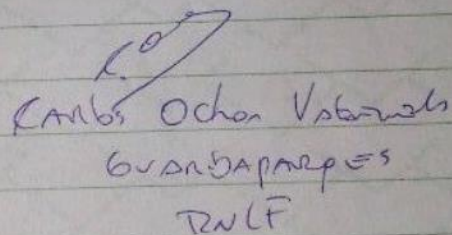 Carlos Ochoa Valenzuela
GUARDAPARQUES
RNLF